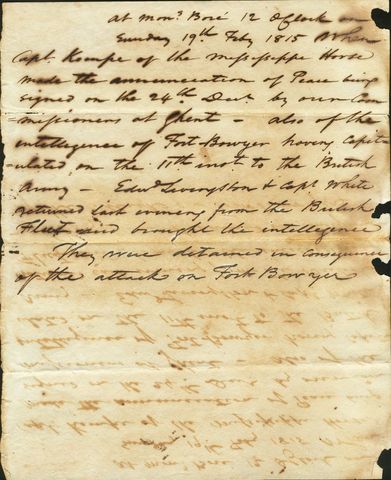 at Mons.r Boré 12 OClock on
Sunday 19th Feby 1815 When
Capt. Kempe of the Mississippi Horse
made the annunceration of Peace being
signed on the 24th Decr. by our Com
missioners at Ghent – also of the
intellegence of Fort-Bowyer having Capit
ulated on the 11th inst to the British
Army – Edwd. Livingston & Capt. White
returned last evening from the British
Fleet and brought the intellegence
They were detained in consequence
of the attack on Fort Bowyer